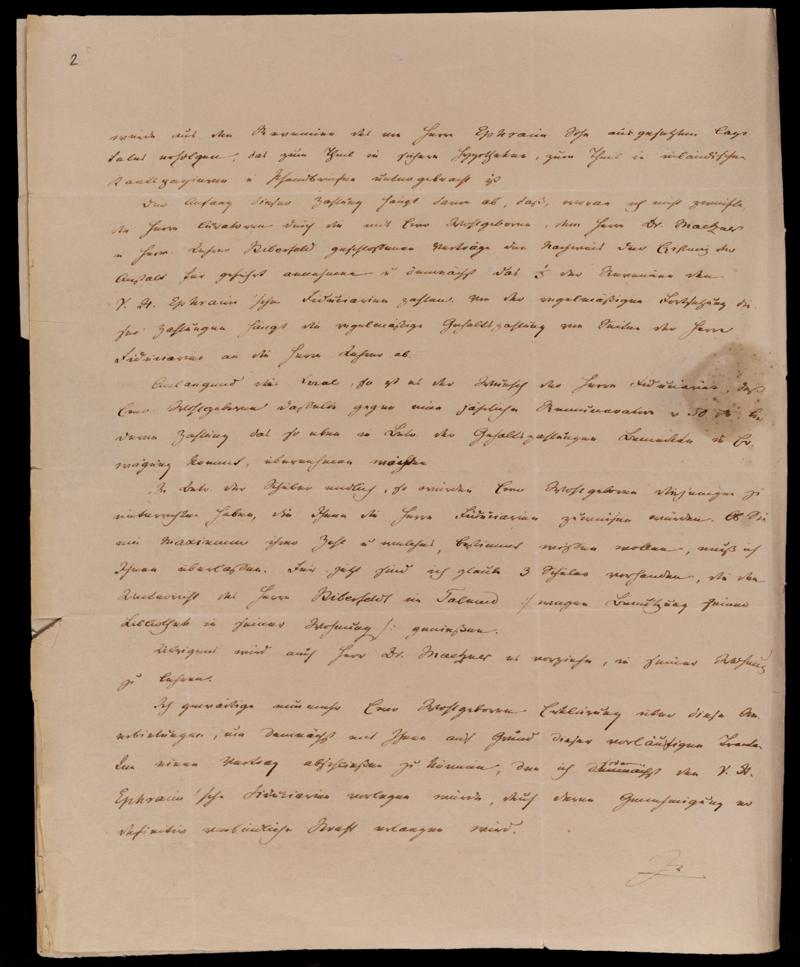 2
werde aus den Revenüen des von Herrn Ephraim Sohn ausgesetzten Capi
tales erfolgen, das zum Theil in sichern Hypotheken, zum Theil in inländischen
Staatspapieren u Pfandbriefen untergebracht ist
Der Anfang dieser Zahlung hängt davon ab, daß, woran ich nicht zweifle,
die Herrn Curatoren durch die mit Ew. Wohlgeboren, dem Herrn Dr. Maetzner
u Herrn Lehrer Biberfeld geschlossenen Verträge den Nachweis der Existenz der
Anstalt für geführt annehmen u demnächst das ⅓ der Revenüen den
V. H. Ephraim'schen Fiduciarien zahlen. Von der regelmäßigen Fortsetzung die
ser Zahlungen hängt die regelmäßige Gehaltszahlung von Seiten der Herrn
Fiduciarien an die Herrn Lehrer ab.
Anlangend das Local, so ist es der Wunsch der Herrn Fiduciarien, daß
Ew. Wohlgeboren dasselbe gegen eine jährliche Remuneration v 50 bei
deren Zahlung das so eben in Betr. der Gehaltszahlungen Bemerkte in Er
wägung kommt, übernehmen möchten
In Betr. der Schüler endlich, so würden Ew. Wohlgeboren diejenigen zu
unterrichten haben, die Ihnen die Herrn Fiduciarien zuweisen würden. Ob Sie
ein Maximum ihrer Zahl u welches, bestimmt wissen wollen, muß ich
Ihnen überlassen. Für jetzt sind ich glaube 3 Schüler vorhanden, die den
Unterricht des Herrn Biberfeldt im Talmud /: wegen Benutzung seiner
Bibliothek in seiner Wohnung :/ genießen.
Übrigens wird auch Herr Dr. Maetzner es vorziehn, in seiner Wohnung
zu lehren.
Ich gewärtige nunmehr Ew. Wohlgeboren Erklärung über diese An
erbietungen, um demnächst mit Ihnen auf Grund dieser vorläufigen Tracta
ten einen Vertrag abschließen zu können, den ich demnächst den V. H.
Ephraim'schen Fiduciarien vorlegen würde, durch deren Genehmigung er
definitiv verbindliche Kraft erlangen wird.